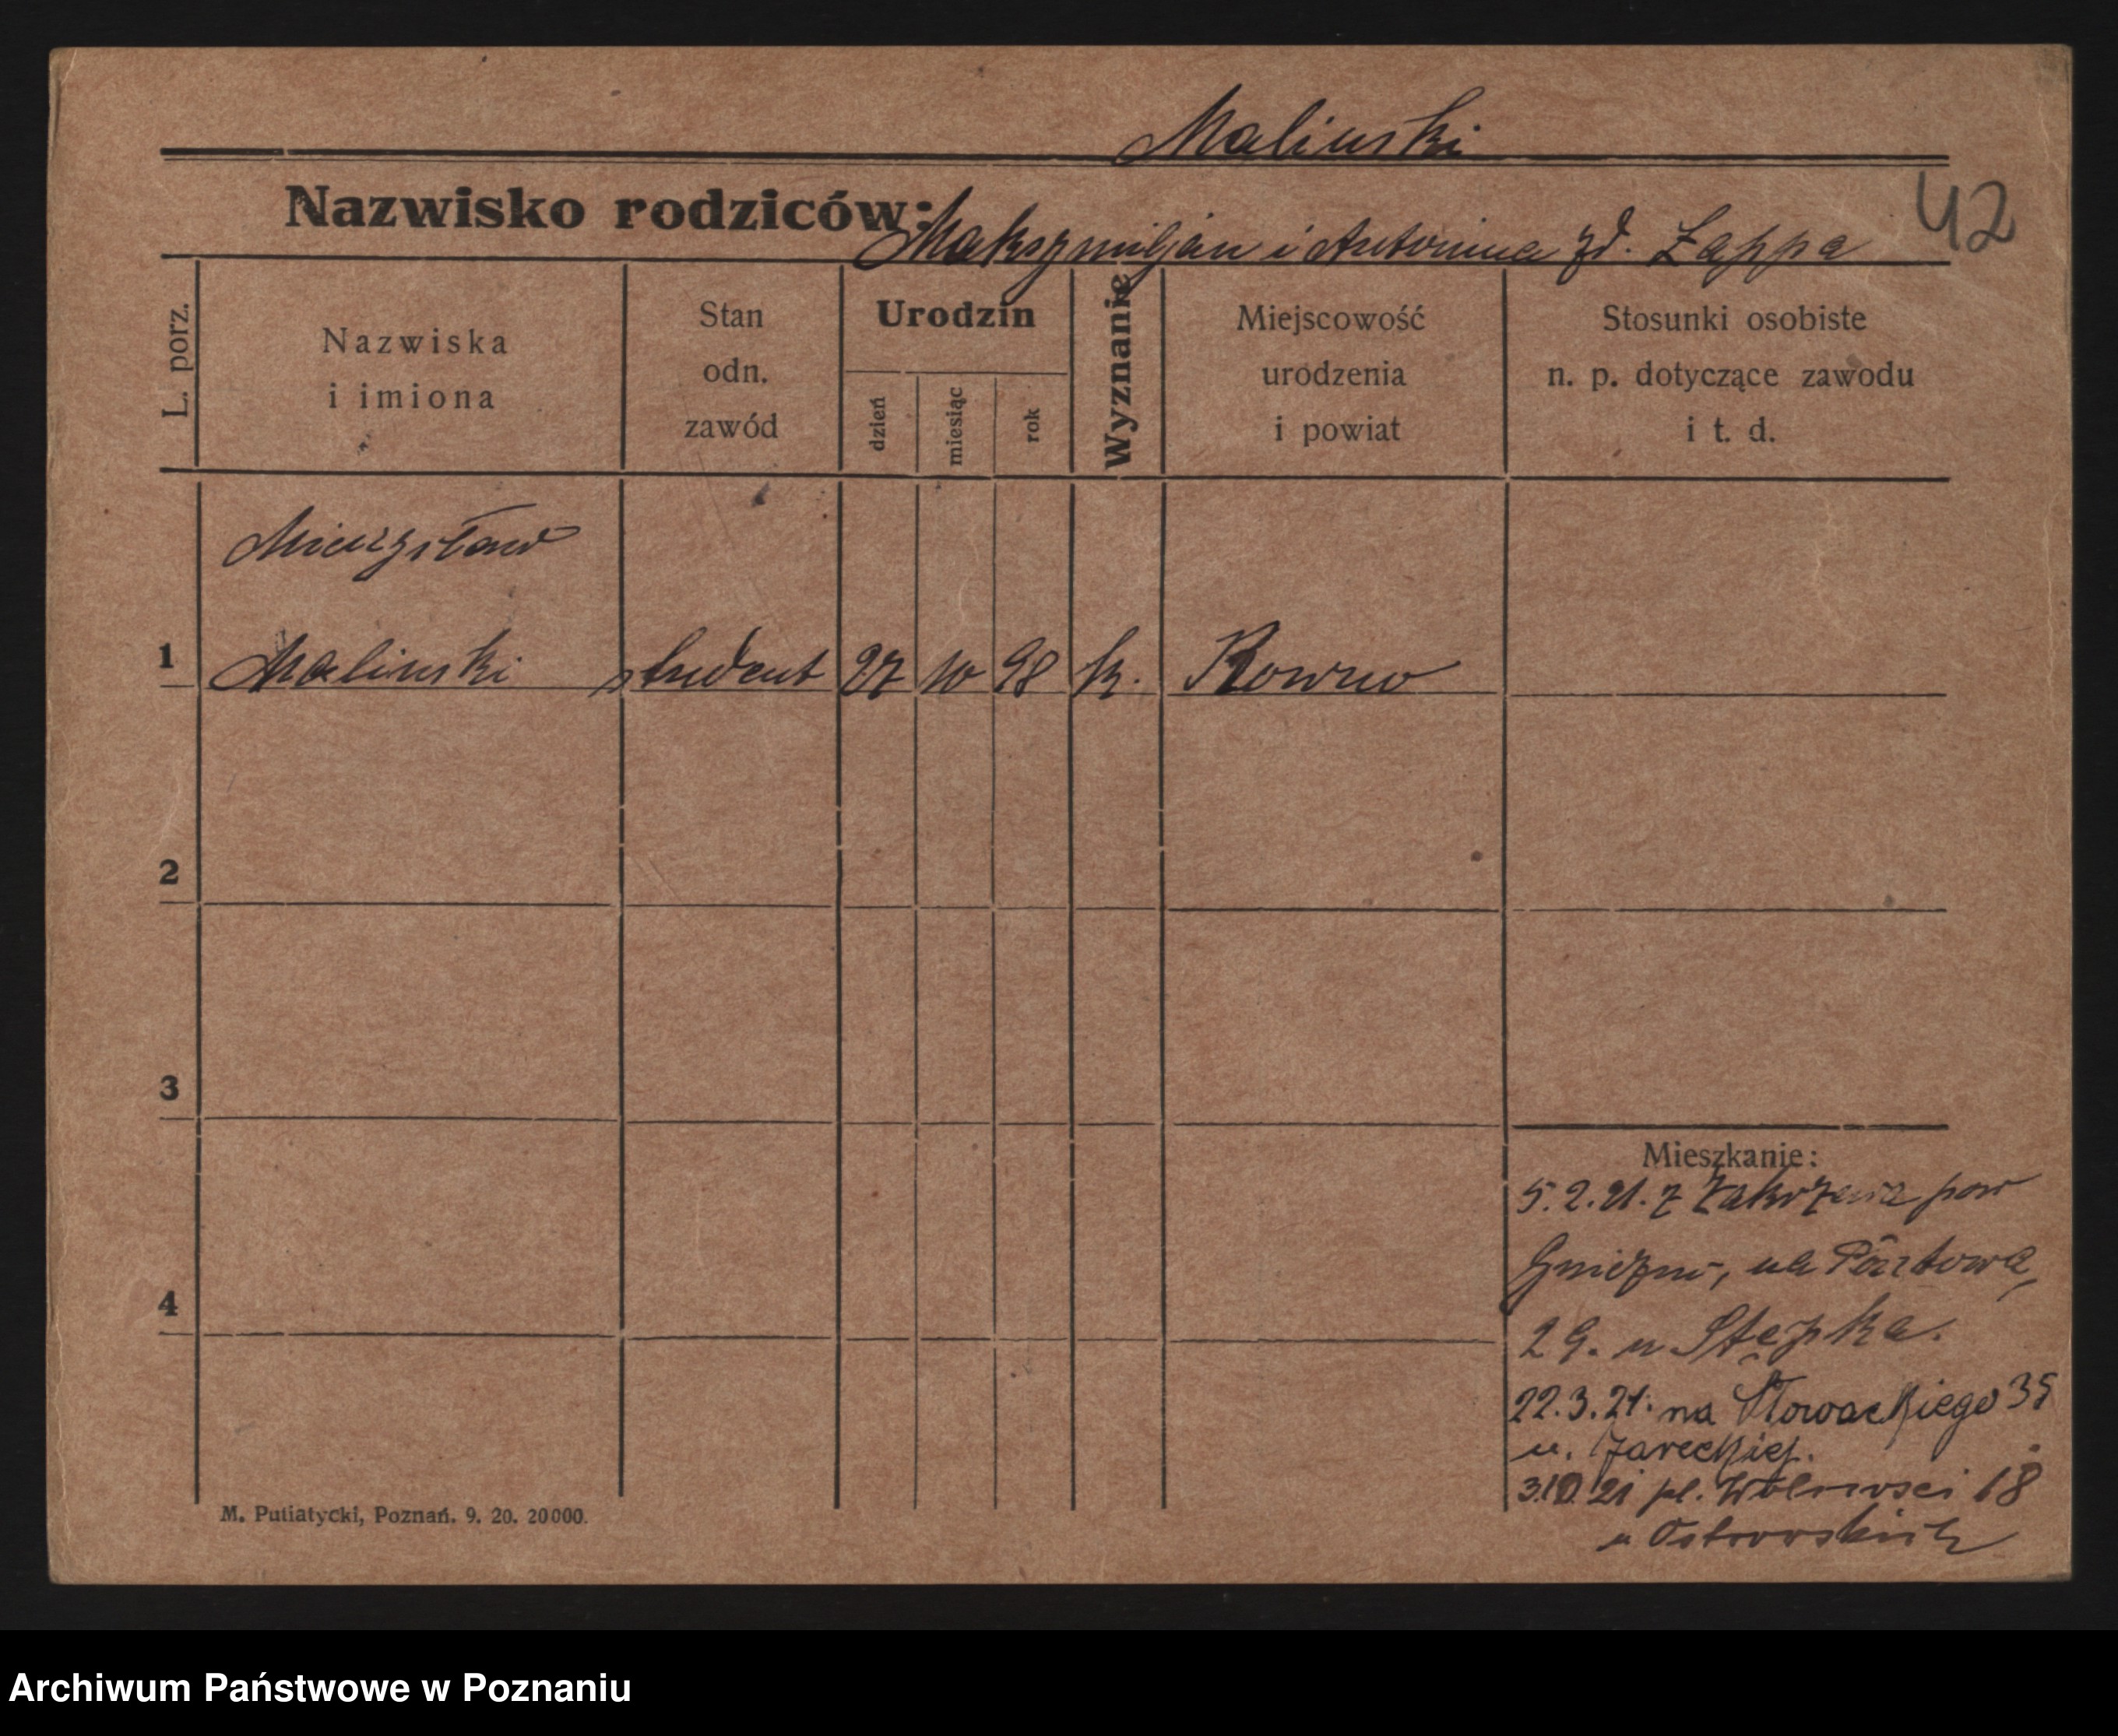 Malinski
Nazwisko rodziców: Maksymiljan i Antonina zd. Zappa
42
L. porz.
Nazwiska
i imiona
Stan
odn.
zawód
Urodzin
dzień
miesiąc
rok
Wyznanie
Miejscowość
urodzenia
i powiat
Stosunki osobiste
n. p. dotyczące zawodu
i t. d.
Mieczysław
1 Malinski student 27 10 98 k. Rowno
2
3
4
Mieszkanie:
5.2.21. z Zakrzewa pow
Gniezno, ul Pocztowa,
29. u Stępka.
22.3.21. na Słowackiego 35
u. Jareckiej.
3.10 21 pl. Wolnosci 18
u Ostrowskich
M. Putiatycki, Poznań. 9. 20. 20000.
Archiwum Państwowe w Poznaniu